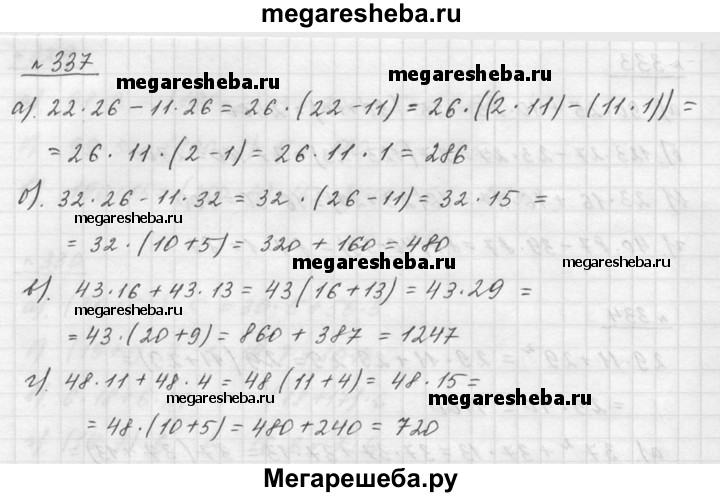 megaresheba.ru
№ 337
megaresheba.ru megaresheba.ru
а). 22·26 − 11·26 = 26·(22−11) = 26·((2·11)−(11·1)) =
= 26·11·(2−1) = 26·11·1 = 286
б). 32·26 − 11·32 = 32·(26−11) = 32·15 =
megaresheba.ru
= 32·(10+5) = 320 + 160 = 480
megaresheba.ru megaresheba.ru
в). 43·16 + 43·13 = 43(16+13) = 43·29 =
megaresheba.ru
= 43·(20+9) = 860 + 387 = 1247
г). 48·11 + 48·4 = 48(11+4) = 48·15 =
megaresheba.ru megaresheba.ru
= 48·(10+5) = 480+240 = 720
Мегарешеба.ру